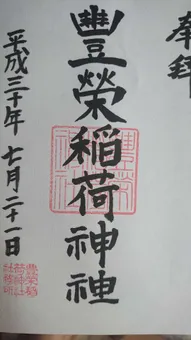 奉拝
豊榮稲荷神社
平成三十年 七月二十一日